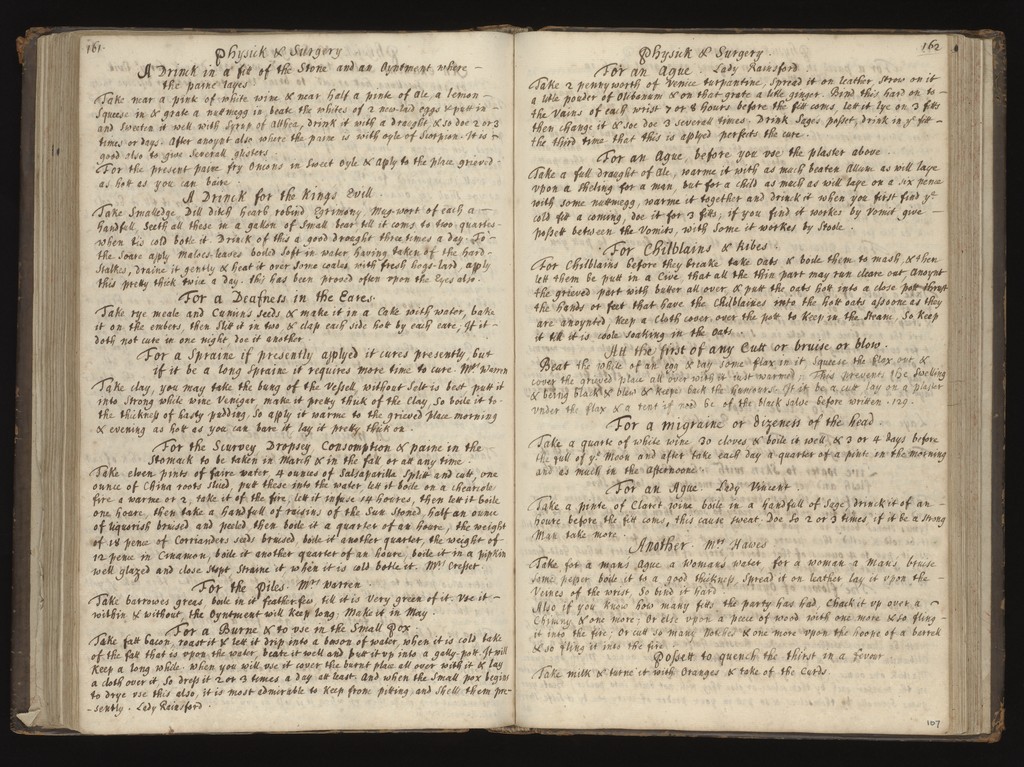 161.
Physick & Surgery
A Drinck in a fitt of the Stone and an Oyntment where
the paine layes
Take near a pinte of white wine & near half a pinte of Ale, a Lemon
Squeese in & grate a nuttmegg in beate the whites of 2 new-laid eggs & putt in
and Sweeten it well with Syrup of Althea, drink it with a draught & so doe 2 or 3
times or days. After anoynt also where the paine is with oyle of Scorpion. It is
good also to give Severall glisters.
For the present paine fry Onions in Sweet Oyle & apply to the place grieved
as hott as you can baire.
A Drinck for the Kings Evell.
Take Smalledge, Dill Ditch hearb robind Egrimony, Mug-wort of each a
handfull, Seeth all these in a gallon of Small bear till it coms to two quartes
when tis cold botle it. Drinck of this a good draught three times a day. To
the Soare apply Malows leaves boiled Soft in water having taken of the hard
Stalkes, draine it gently & heat it over Some coales with fresh hogs-lard, apply
this pretty thick twice a day. this has been proved often upon the Eyes also
For a Deafness in the Eares.
Take rye meale and Cumins seeds & make it in a Cake with water, bake
it on the embers, then Slitt it in two & clap each side hott by each eare, If it
doth not cure in one night doe it another
For a Spraine if presently applyed it cures presently, but
if it be a long Spraine it requires more time to cure. Mrs Warren
Take clay, you may take the bung of the Vessell, without Selt is best putt it
into Strong white wine Veneger make it pretty thick of the Clay, So boile it to
the thickness of hasty pudding, So apply it warme to the grieved place morning
& evening as hott as you can bare it, lay it pretty thick on.
For the Scurvey Dropsey Consomption & paine in the
Stomack to be taken in March & in the fall or att any time.
Take eleven pints of faire water 4 ounces of Salsaparilla Splitt and cutt, one
ounce of China roots sliced, putt these into the water, lett it boile on a chearcole
fire a warme or 2, take it of the fire, lett it infuse 14 houres, then lett it boile
one hoare, then take a handfull of raisins of the Sun Stoned, half an ounce
of liquorish brused and peeled, then boile it a quarter of an houre, the weight
of 18 pence of Corriander seeds brused, boile it another quarter, the weight of
12 pence in Cinamon, boile it another quarter of an houre, boile it in a pipkin
well glazed and close stopt Straine it when it is cold botle it. Mrs Cresset
For the Piles. Mrs Warren.
Take barrowes greas, boile in it featherfew till it is very green of it. Use it
within & without, the Oyntment will Keep long, Make it in May.
For a Burne & to vse in the Small Pox.
Take fatt bacon, roast it & lett it drip into a bason of water when it is cold take
of the fatt that is vpon the water, beate it well and putt it vp into a gally-pott. It will
Keep a long while. when you will vse it cover the burnt place all over with it & lay
a cloth over it So dress it 2 or 3 times a day att least. And when the Small pox begins
to drye vse this also, it is most admirable to Keep from pitting, and Shell them pre-
-sently. Lady Rainsford.
162
Physick & Surgery.
For an Ague. Lady Rainsford.
Take 2 pennyworth of Venice turpantine, Spread it on leather Strow on it
a little pouder of Olibanum & on that grate a little ginger. Bind this hard on to
the Vains of each wrist 7 or 8 hours before the fitt coms, lett it lye on 3 fitts
then change it & soe doe 3 severall times. Drink Sages possett, drink in ye fitt
the third time that this is applyed perfects the cure.
For an Ague, before you vse the plaster above.
Take a full draught of Ale, warme it with as much beaten Allum as will laye
vpon a Sheling for a man, but for a child as much as will laye on a six pence
with some nuttmegg, warme it together and drinck it when you first find ye
cold fitt a coming, doe it for 3 fitts; if you find it workes by Vomit give
possett between the Vomits, with Some it workes by Stoole.
For Chilblains & Kibes.
For Chilblaines before they breake take Oats & boile them to mash, & then
lett them be putt in a Cive that all the thin part may run cleare out, Anoynt
the grieved part with butter all over, & putt the oats hott into a close pott thrust
the hands or feet that have the Chilblaines into the hott oats assoone as they
are anoynted; Keep a Cloth cover over the pott to Keep in the Steame, So Keep
it till it is coole soaking in the Oats.
Att the first of any Cutt or bruise or blow.
Beat the white of an egg & lay some flax in it Squeese the flax out &
cover the grieved place all over with it Just warmed; This prevents the Swelling
& being black & blew & Keeps back the humours. If it be a cutt lay on a plaster
vnder the flax & a tent if need be of the black salve before written. 129.
For a migraine or dizeness of the head.
Take a quarte of white wine 30 cloves & boile it well & 3 or 4 days before
the full of ye Moon and after take each day a quarter of a pinte in the morning
and as much in the afternoone.
For an Ague. Lady Vincent.
Take a pinte of Claret wine boile in a handfull of Sage, drinck it of an
houre before the fitt coms, this cause sweat. Doe So 2 or 3 times, if it be a strong
Man take more.
Another. Mrs Hawes
Take for a mans Ague a womans water, for a woman a Mans, bruise
some pepper boile it to a good thickness, Spread it on leather lay it vpon the
Veines of the wrist, So bind it hard.
Also if you know how many fitts the party has had, Chalk it vp over a
Chimny & one more; Or else vpon a peece of wood with one more & so fling
it into the fire; Or cutt so many notches & one more vpon the hoope of a barrell
& so fling it into the fire
Possett to quench the thirst in a fevour.
Take milk & turne it with Oranges & take of the Curds.
107